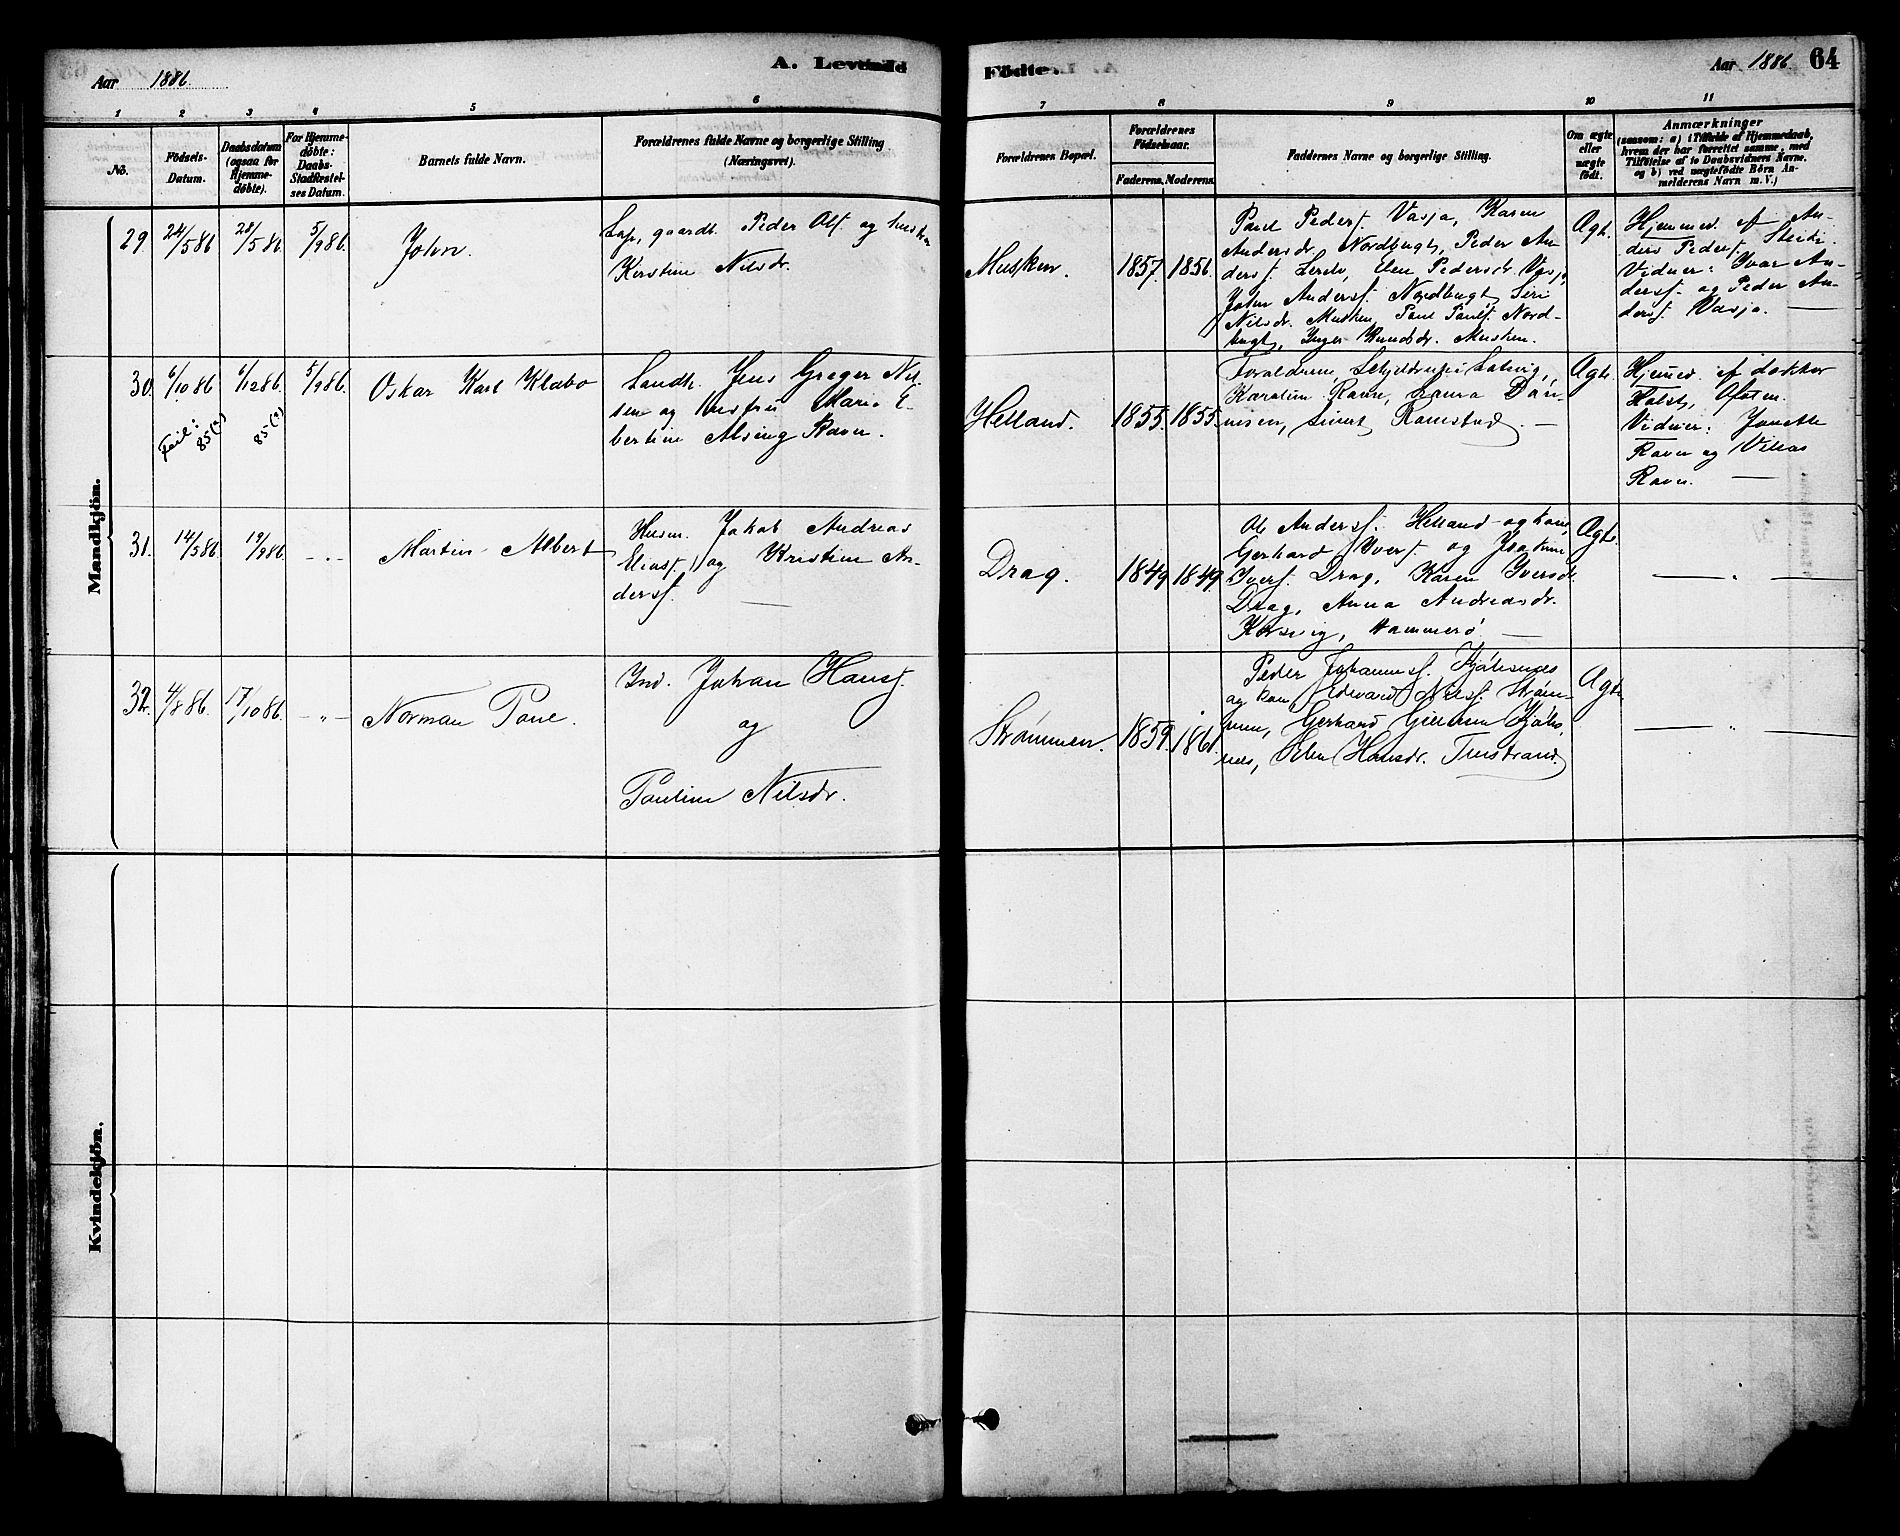 Aar 1886
A. Levende
Födte.
Aar 1886 64
1 2 3 4 5 6 7 8 9 10 11
No.
Födsels-
Datum.
Daabsdatum
(ogsaa for
Hjemme-
döbte).
For Hjemme-
döbte:
Daabs-
Stadfæstel-
ses Datum.
Barnets fulde Navn.
Forældrenes fulde Navne og borgerlige Stilling
(Næringsvei).
Forældrenes Bopæl.
Forældrenes
Födselsaar.
Faderens. Moderens.
Faddernes Navne og borgerlige Stilling.
Om ægte
eller
uægte
födt.
Anmærkninger
(saasom: a) i Tilfælde af Hjemmedaab,
hvem der har forrettet samme, med
Tilföielse af to Daabsvidners Navne,
og b) ved uægtefödte Börn An-
melderens Navn m. V.)
Mandkjön.
29. 24/5 86 28/5 86. 5/9 86. John.
Lap, gaardb. Peder Olf. og hustru
Kirstine Nilsdr.
Musken. 1857. 1856.
Paul Pedersf. Vasja, Karen
Andersdr. Nordbugt, Peder An-
dersf. , Elen Pedersdr. Vasja,
John Andersf. Nordbugt, Siri
Nilsdr. Musken, Paul Paulsf. Nord-
bugt, Inger Knudsdr. Musken.
Ægt.
Hjemmed. af An-
ders Pedersf.
Vidner: Ivar An-
dersf. og Peder An-
dersf. Vasja. —
30. 6/10 86 6/12 86. 5/9 86. Oskar Karl Klæbo
Feil: 85(?) 85(?)
Landh. Jens Greger Nil-
sen og Hustru Maria E-
bertine Alsing Ravn.
Helland. 1855. 1855.
Forældrene,
Karoline Ravn, Laura Dan-
ielsen, Sivert Ramstad. —
Ægte.
Hjemmed. af doktor
Holst, Ofoten.
Vidner: Janette
Ravn og
Ravn. —
31. 14/5 86 19/9 86. - " - Martin Albert
Husm. Jakob Andreas
Eliasf. og Kristine An-
dersf. —
Drag. 1849 1849.
Ole Andersf. Helland og kone,
Gerhard Iversf. og
Iversf. Drag, Karen Iversdr.
Drag, Anna Andreasdr.
Korsvig, Hammerö —
Ægte.
— " —
32. 4/8 86. 17/10 86. - " - Norman Paul.
Ind. Johan Hansf.
og
Pauline Nilsdr.
Strømmen. 1859. 1861.
Peder Johannesf. Kjølsnes
og kone, Edevard Nilsf. Strøm-
men, Gerhard Kjøls-
nes, Elen Hansdr.
Ægte
— " —
Kvindekjön.